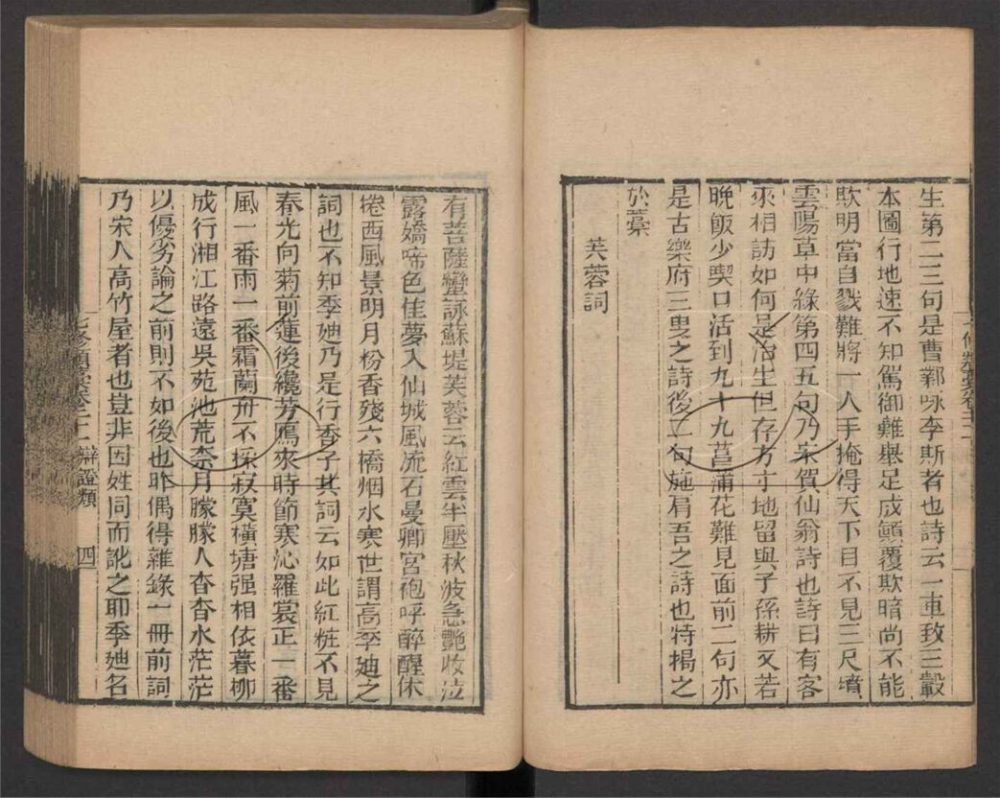 生第二三句是曹鄴咏李斯者也詩云一車致三轂
本圖行地速不知駕御難舉足成顛覆欺暗尚不能
欺明當自戮難將一人手掩得天下目不見三尺墳
雲陽草中綠第四五句乃宋賀仙翁詩也詩曰有客
來相訪如何是治生但存方寸地留與子孫耕又若
晚飯少喫口活到九十九菖蒲花難見面前二句亦
是古樂府三叟之詩後二句施肩吾之詩也特揭之
於藁
芙蓉詞
有菩薩蠻詠蘇堤芙蓉云紅雲半壓秋波急艷妝泣
露嬌啼色佳夢入仙城風流石曼卿宮袍呼醉醒休
捲西風景明月粉香殘六橋烟水寒世謂高季廸之
詞也不知季廸乃是行香子其詞云如此紅粧不見
春光向菊前蓮後纔芳鴈來時節寒沁羅裳正一番
風一番雨一番霜蘭舟不採寂寞橫塘强相依暮柳
成行湘江路遠吳苑池荒奈月朦朦人杳杳水茫茫
以優劣論之前則不如後也昨偶得雜錄一冊前詞
乃宋人高竹屋者也豈非因姓同而訛之耶季廸名
七修類藁卷二十二 辯證類 四